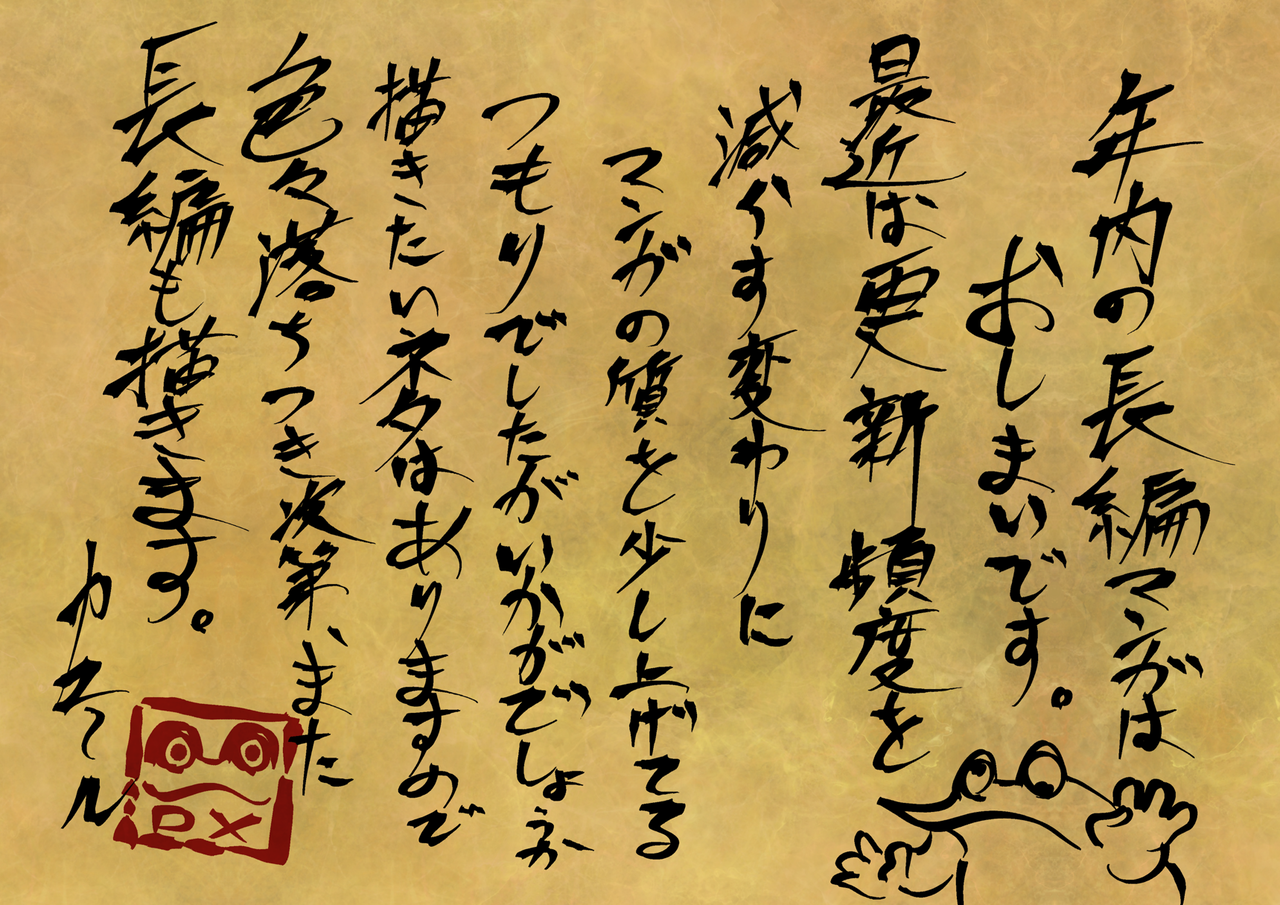 年内の長編マンガは
おしまいです。
最近は更新頻度を
減らす変わりに
マンガの質を少し上げてる
つもりでしたがいかがでしょうか
描きたいネタはありますので
色々落ちつき次第、また
長編も描きます。
カエル
DX